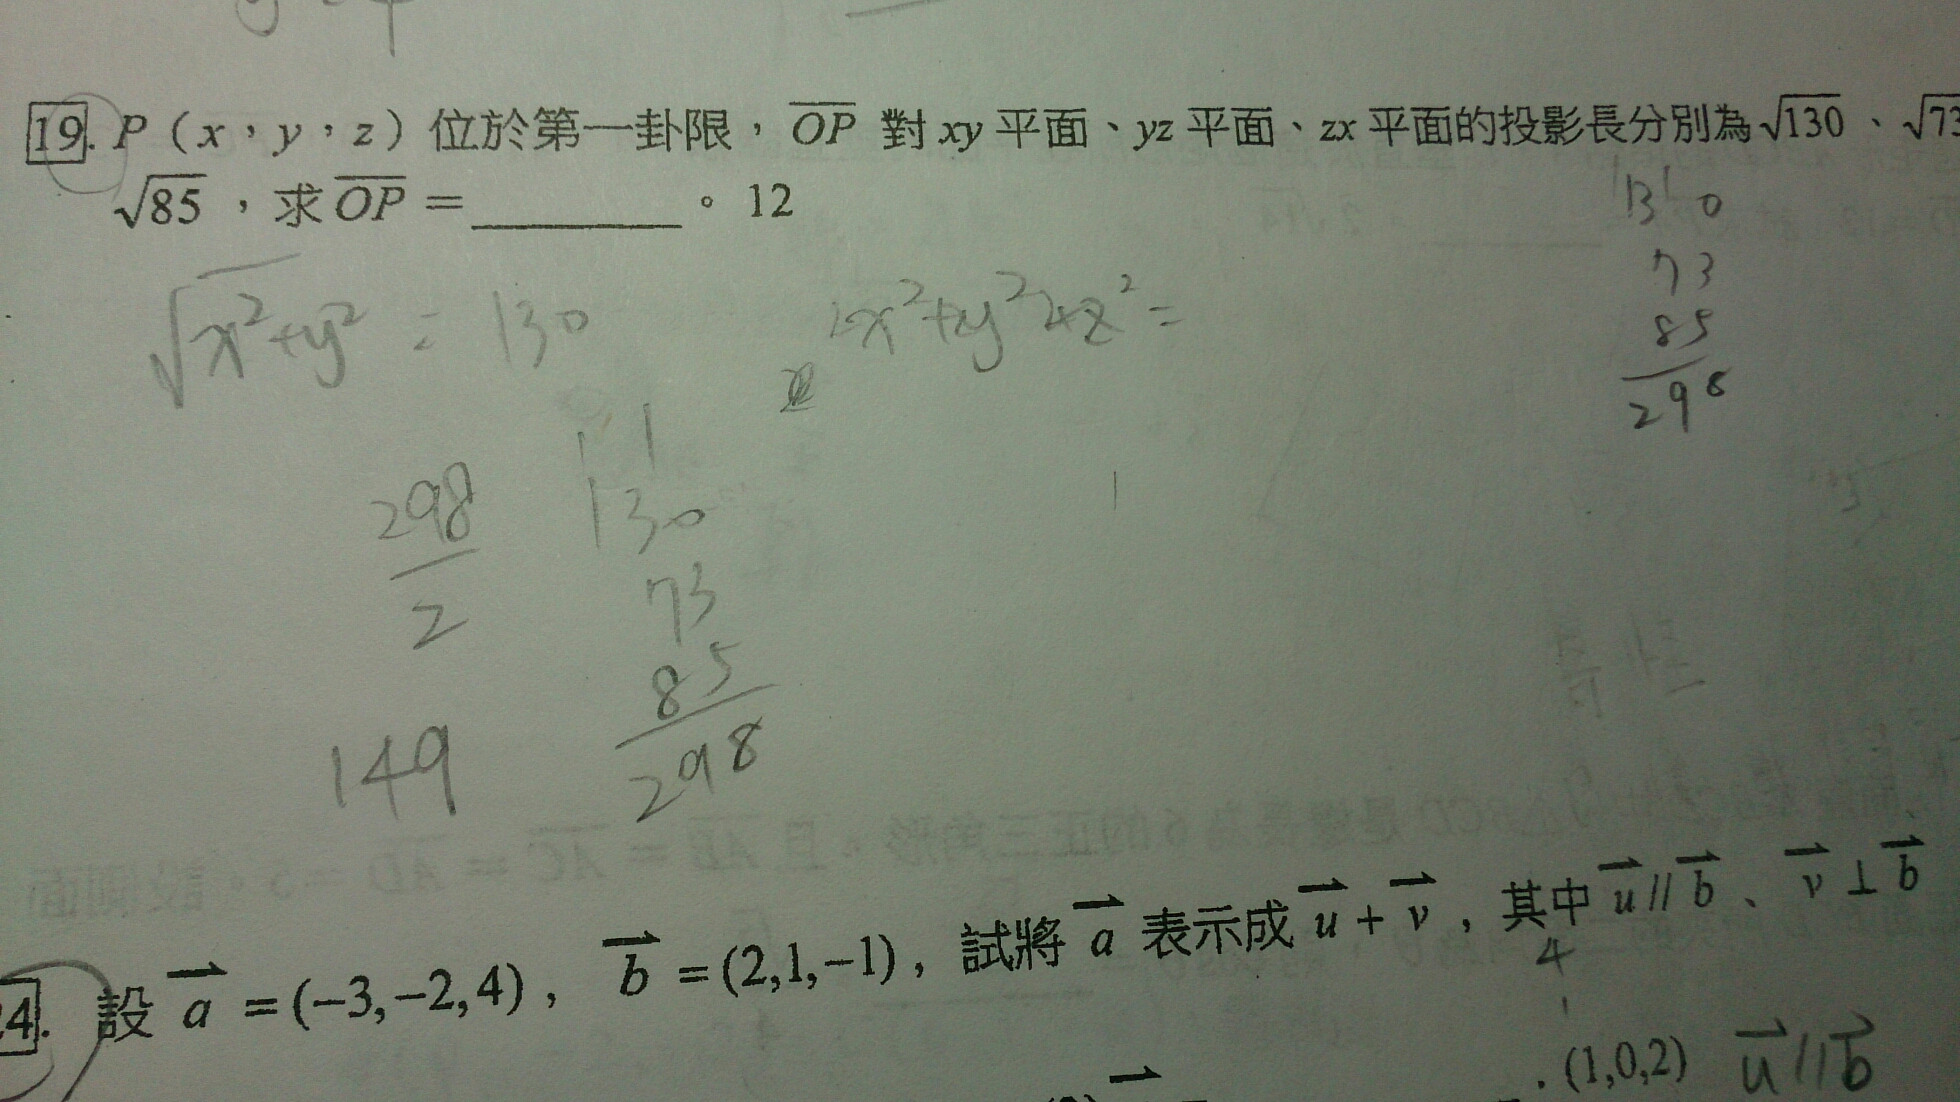 19. P（x，y，z）位於第一卦限，OP 對 xy 平面、yz 平面、zx 平面的投影長分別為√130、√73
√85，求 OP = ________。12
√x²+y² = 130
x²+y²+z² =
1 3 0
73
85
298
298
2
149
130
73
85
298
24. 設 a = (−3,−2,4)， b = (2,1,−1)，試將 a 表示成 u + v，其中 u // b、v ⊥ b
4
1
(1,0,2) u // b